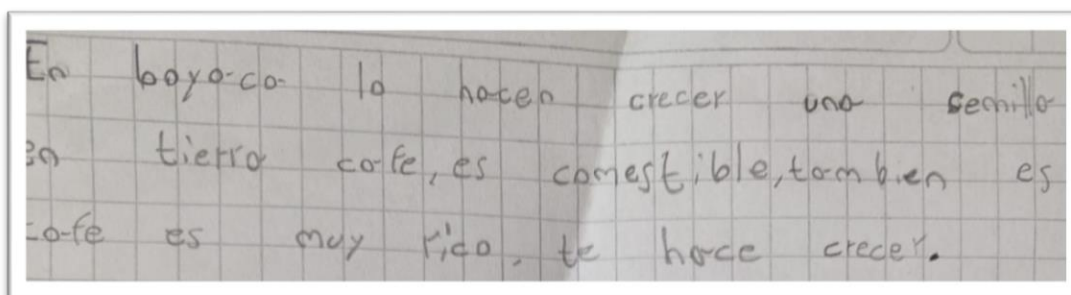 En boyoca lo hacen crecer una semilla
en tierra cafe, es comestible, tambien es
cafe es muy rico, te hace crecer.